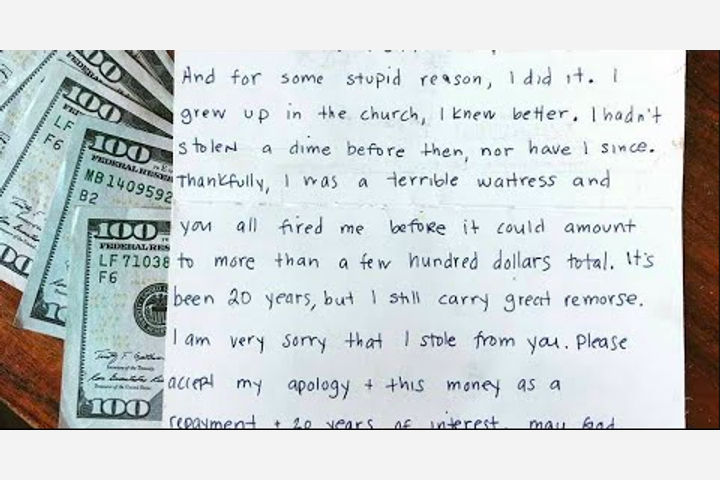 And for some stupid reason, I did it. I
grew up in the church, I knew better. I hadn't
stolen a dime before then, nor have I since.
Thankfully, I was a terrible waitress and
you all fired me before it could amount
to more than a few hundred dollars total. It's
been 20 years, but I still carry great remorse.
I am very sorry that I stole from you. Please
accept my apology + this money as a
repayment + 20 years of interest. may God
100
100
LF
F6
100
FEDERAL RES
MB1409592
B2
100
FEDERAL RES
LF71038
F6
100